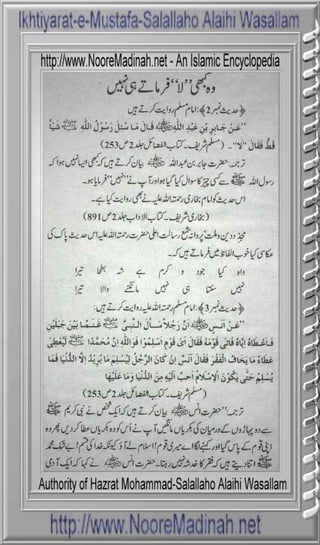 Ikhtiyarat-e-Mustafa-Salallaho Alaihi Wasallam
http://www.NooreMadinah.net - An Islamic Encyclopedia
وہ کبھی ’’لا‘‘ فرماتے ہی نہیں
﴿حدیث نمبر 2﴾: امام مسلم روایت کرتے ہیں
’’عَنْ جَابِرِ بْنِ عَبْدِ اللّٰهِ قَالَ مَا سُئِلَ رَسُوْلُ اللّٰهِ ﷺ شَيْأً
قَطُّ فَقَالَ ’’لَا‘‘۔ (مسلم شریف۔ کتاب الفضائل جلد 2 ص 253)
ترجمہ: حضرت جابر بن عبد اللہ بیان کرتے ہیں کہ کبھی ایسا نہیں ہوا کہ
رسول اللہ ﷺ سے کسی چیز کا سوال کیا گیا ہو اور آپ نے ’’نہیں‘‘ فرمایا ہو۔
اس حدیث کو امام بخاری رحمتہ اللہ علیہ نے بھی روایت کیا ہے۔
(بخاری شریف۔ کتاب الاداب جلد 2 ص 891)
مجدد دین و ملت پروانہ شمع رسالت اعلیٰ حضرت رحمتہ اللہ علیہ اس حدیث پاک کی
عکاسی کیا خوب الفاظ میں فرماتے ہیں کہ۔
واہ کیا جود و کرم ہے شہ بطحا تیرا
نہیں سنتا ہی نہیں مانگنے والا تیرا
﴿حدیث نمبر 3﴾: امام مسلم رحمتہ اللہ علیہ روایت کرتے ہیں:
’’عَنْ اَنَسٍ اَنَّ رَجُلاً سَأَلَ النَّبِيَّ ﷺ غَنَمًا بَيْنَ جَبَلَيْنِ
فَاَعْطَاهُ اِيَّاهُ فَاَتٰى قَوْمَهٗ فَقَالَ اَىْ قَوْمِ اَسْلِمُوْا فَوَ اللّٰهِ اِنَّ مُحَمَّدًا لَيُعْطِىْ
عَطَاءً مَا يَخَافُ الْفَقْرَ فَقَالَ اَنَسٌ اِنْ كَانَ الرَّجُلُ لَيُسْلِمُ مَا يُرِيْدُ اِلَّا الدُّنْيَا فَمَا
يُسْلِمُ حَتّٰى يَكُوْنَ الْاِسْلَامُ اَحَبَّ اِلَيْهِ مِنَ الدُّنْيَا وَمَا عَلَيْهَا
(مسلم شریف۔ کتاب الفضائل جلد 2 ص 253)
ترجمہ: ’’حضرت انس بیان کرتے ہیں کہ ایک شخص نے نبی کریم ﷺ
سے دو پہاڑوں کے درمیان کی بکریاں مانگیں آپ نے اس کو وہ بکریاں عطا کر دیں پھر وہ
اپنی قوم کے پاس گیا اور کہنے لگا اے میری قوم! اسلام لے آؤ کیونکہ خدا کی قسم! بے شک محمد
ﷺ اتنا دیتے ہیں کہ فقر کا خدشہ نہیں رہتا۔ حضرت انس نے کہا کہ ایک آدمی
Authority of Hazrat Mohammad-Salallaho Alaihi Wasallam
http://www.NooreMadinah.net